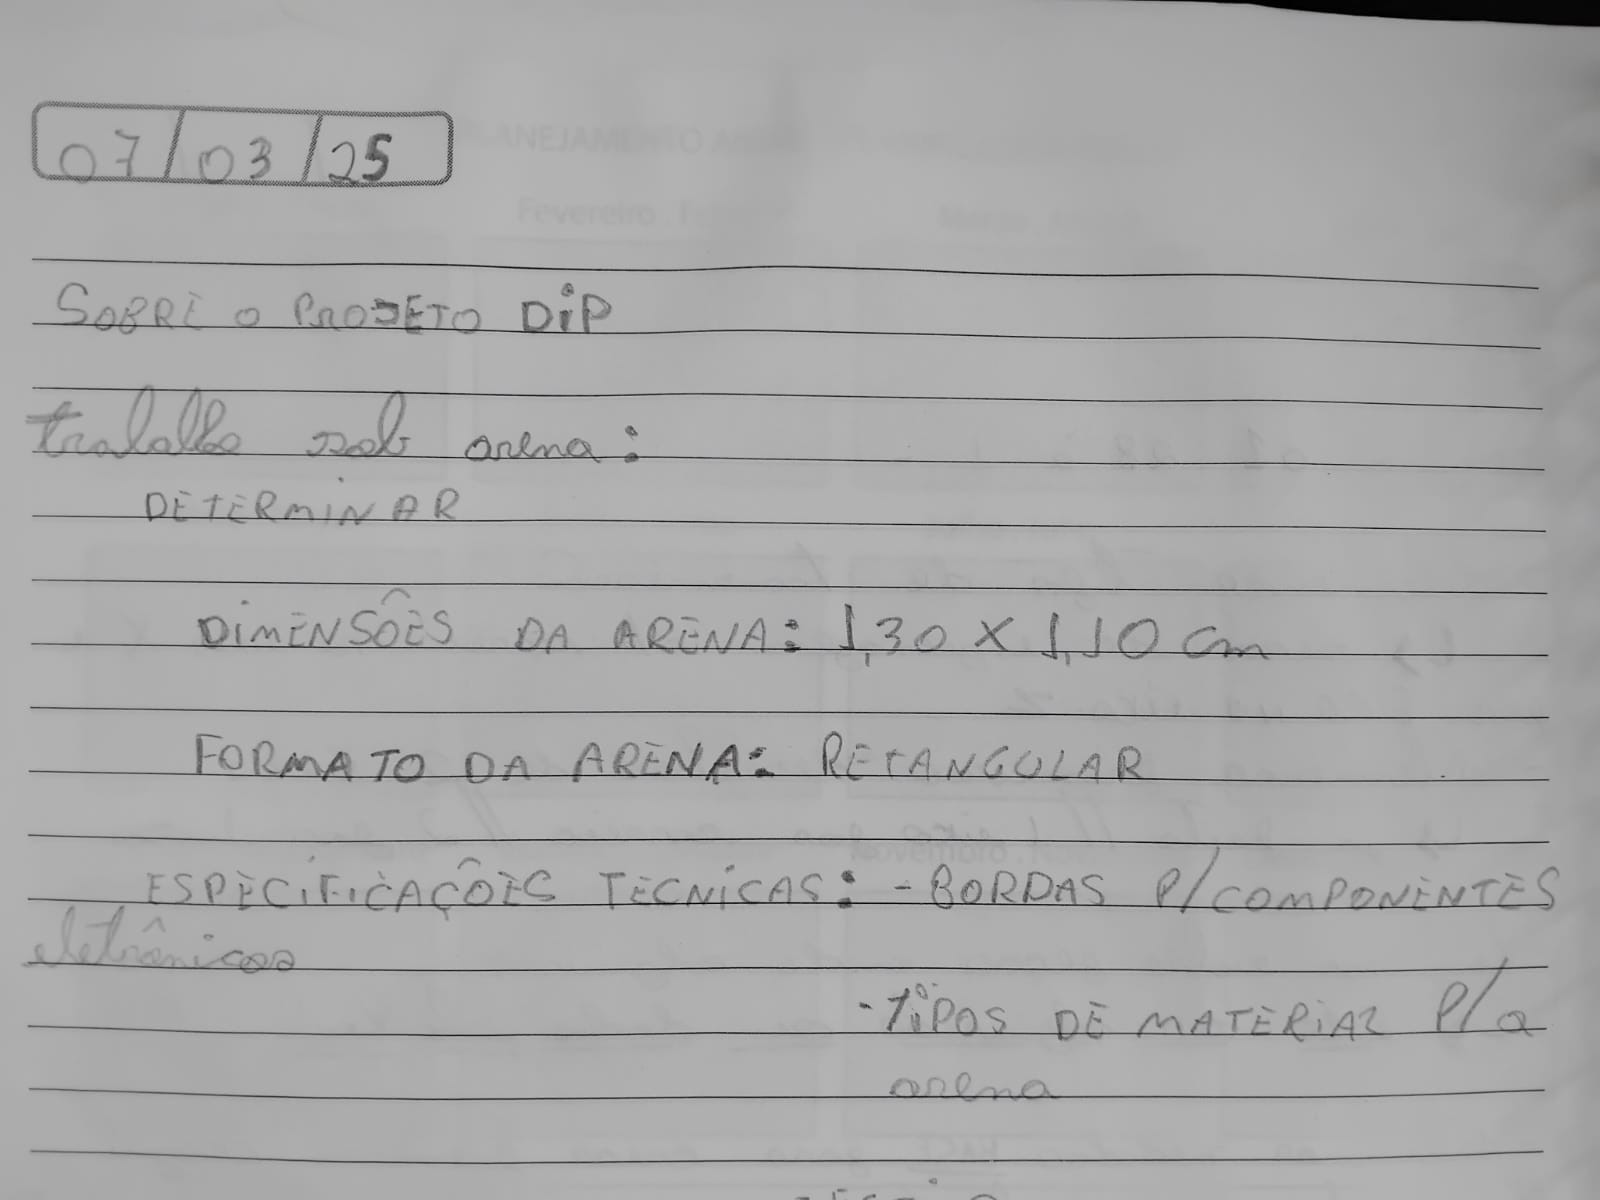 07/03/25
SOBRE O PROJETO DiP
trabalho sob arena:
DETERMINAR
DIMENSÔES DA ARENA: 1,30 X 1,10 cm
FORMATO DA ARENA: RETANGULAR
ESPECIFICAÇÔES TECNICAS: - BORDAS P/COMPONENTES
eletrônicos
- TIPOS DE MATERIAL P/a
arena